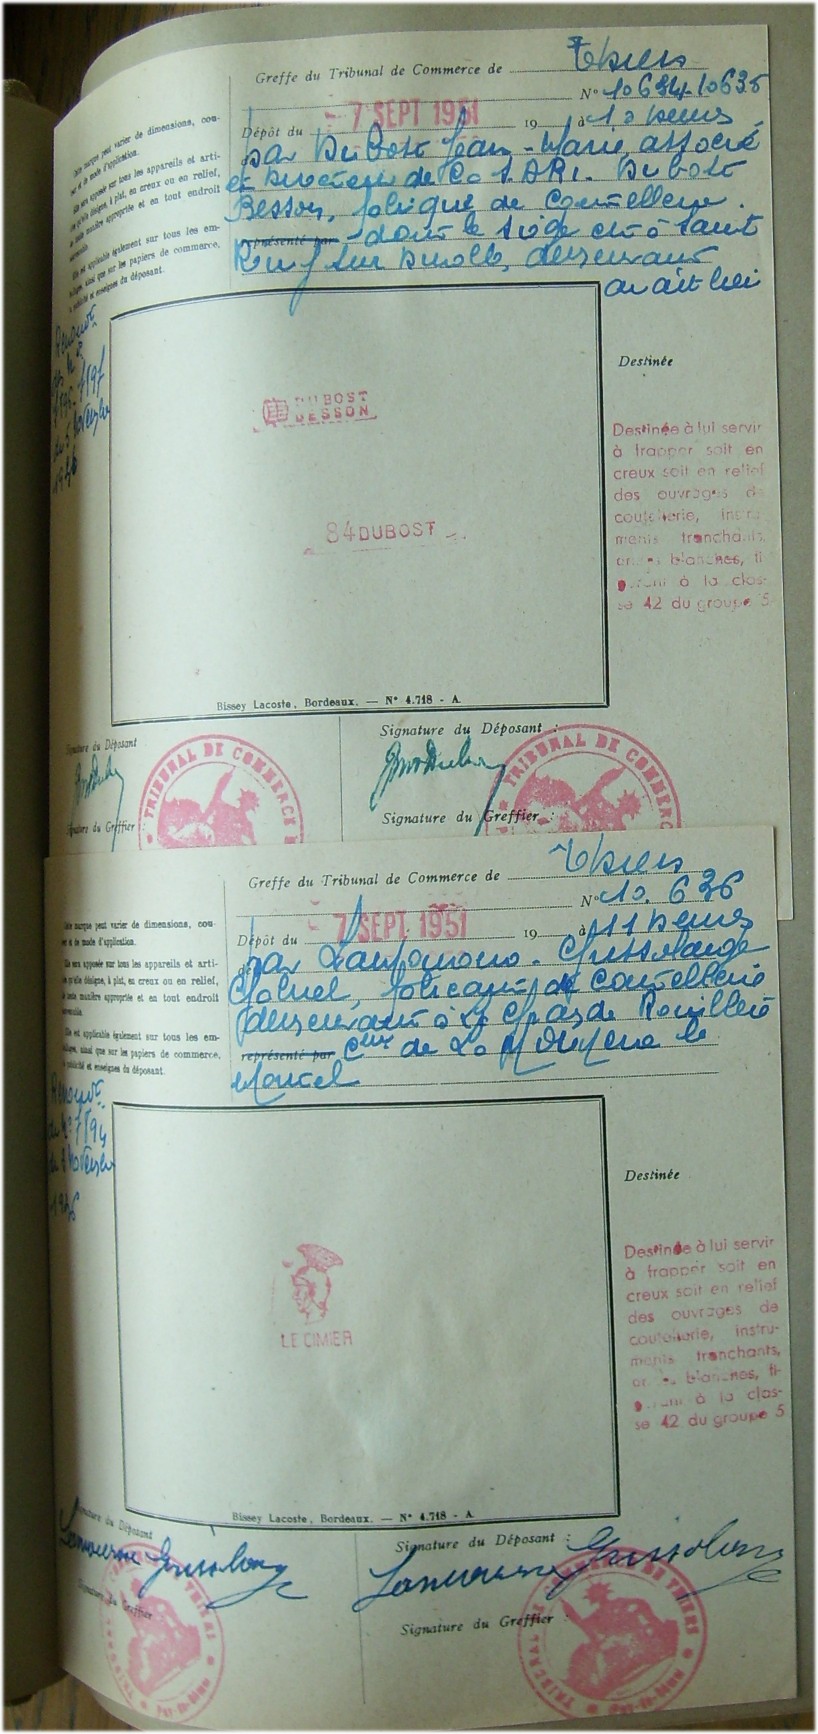 Greffe du Tribunal de Commerce de Thiers
N° 10634-10635
Dépôt du 7 SEPT 1951 19 à 10 heures
par Dubost Jean-Marie associé
et Directeur de la S.A.R.L. Dubost
Besson, fabrique de coutellerie.
représenté par dont le siège est à Saint
Remy sur Durolle, demeurant
au dit lieu
Cette marque peut varier de dimensions, cou-
leur et de mode d'application.
Elle sera apposée sur tous les appareils et arti-
cles qu'elle désigne, à plat, en creux ou en relief,
de toute manière appropriée et en tout endroit
convenable.
Elle est applicable également sur tous les em-
ballages, ainsi que sur les papiers de commerce,
de publicité et enseignes du déposant.
5 Novembre
1936
DUBOST
BESSON
84 DUBOST
Destinée
Destinée à lui servir
à frapper soit en
creux soit en relief
des ouvrages de
coutellerie, instru-
ments tranchants,
armes blanches, fi-
gurant à la clas-
se 42 du groupe 5
Bissey Lacoste, Bordeaux. — N° 4.718 - A
Signature du Déposant
Signature du Greffier
Signature du Déposant :
Signature du Greffier :
TRIBUNAL DE COMMERCE
TRIBUNAL DE COMMERCE
Greffe du Tribunal de Commerce de Thiers
N° 10.636
Dépôt du 7 SEPT. 1951 19 à 11 heures
par Grissolange
fabricant de coutellerie
demeurant à
représenté par Cne de La Monnerie le
Montel
Cette marque peut varier de dimensions, cou-
leur et de mode d'application.
Elle sera apposée sur tous les appareils et arti-
cles qu'elle désigne, à plat, en creux ou en relief,
de toute manière appropriée et en tout endroit
convenable.
Elle est applicable également sur tous les em-
ballages, ainsi que sur les papiers de commerce,
de publicité et enseignes du déposant.
Novembre
1936
LE CIMIER
Destinée
Destinée à lui servir
à frapper soit en
creux soit en relief
des ouvrages de
coutellerie, instru-
ments tranchants,
armes blanches, fi-
gurant à la clas-
se 42 du groupe 5
Bissey Lacoste, Bordeaux. — N° 4.718 - A
Signature du Déposant
Signature du Greffier
Signature du Déposant :
Signature du Greffier :
TRIBUNAL DE COMMERCE DE THIERS
PUY-DE-DÔME